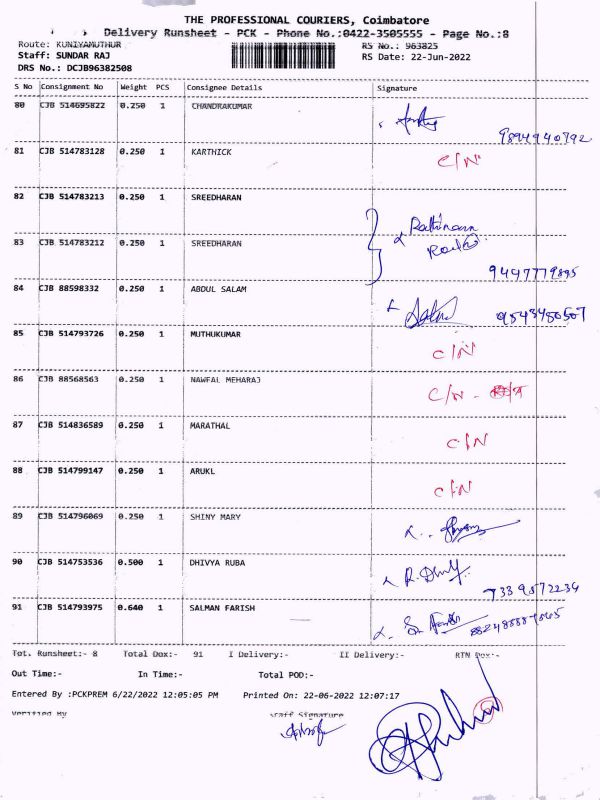 THE PROFESSIONAL COURIERS, Coimbatore
Delivery Runsheet - PCK - Phone No.:0422-3505555 - Page No.:8
Route: KUNIYAMUTHUR
RS No.: 963825
Staff: SUNDAR RAJ
RS Date: 22-Jun-2022
DRS No.: DCJB96382508
S No Consignment No Weight PCS Consignee Details Signature
80 CJB 514695822 0.250 1 CHANDRAKUMAR
9894940792
81 CJB 514783128 0.250 1 KARTHICK C/N
82 CJB 514783213 0.250 1 SREEDHARAN
83 CJB 514783212 0.250 1 SREEDHARAN
9447779895
84 CJB 88598332 0.250 1 ABDUL SALAM 9543480507
85 CJB 514793726 0.250 1 MUTHUKUMAR C/N
86 CJB 88568563 0.250 1 NAWFAL MEHARAJ C/N -
87 CJB 514836589 0.250 1 MARATHAL C/N
88 CJB 514799147 0.250 1 ARUKL C/N
89 CJB 514796069 0.250 1 SHINY MARY
90 CJB 514753536 0.500 1 DHIVYA RUBA
7339572234
91 CJB 514793975 0.640 1 SALMAN FARISH
Tot. Runsheet:- 8 Total Dox:- 91 I Delivery:- II Delivery:- RTN Dox:-
Out Time:- In Time:- Total POD:-
Entered By :PCKPREM 6/22/2022 12:05:05 PM Printed On: 22-06-2022 12:07:17
Verified By Staff Signature